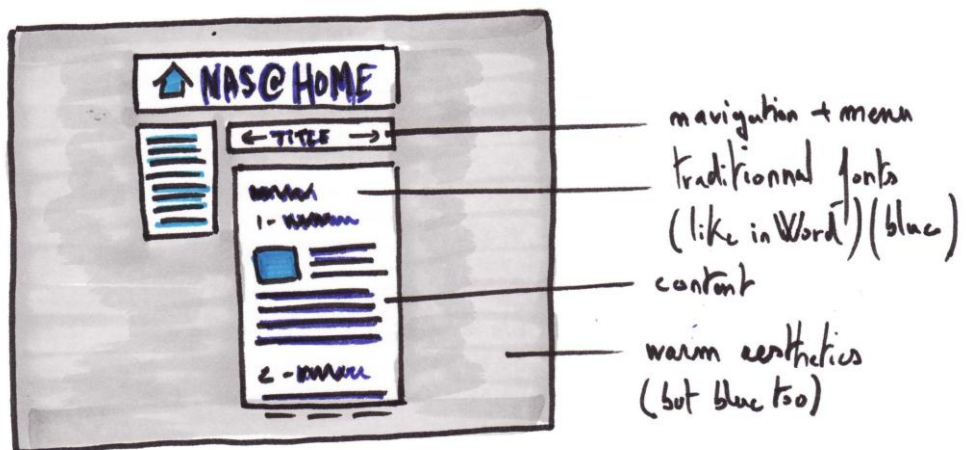 NAS@HOME
← TITLE →
1 -
2 -
navigation + menu
traditionnal fonts
(like in Word) (blue)
content
warm aesthetics
(but blue too)